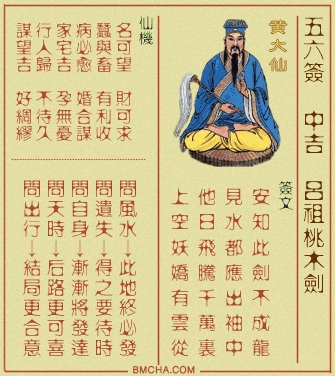 五六簽 中吉 呂祖桃木劍
黄大仙
簽文
安知此劍不成龍
見水都應出袖中
他日飛騰千萬裏
上空妖嬌有雲從
仙機
名可望 財可求
蠶與畜 有利收
病必愈 婚合謀
家宅吉 孕無憂
行人歸 不待久
謀望吉 好綢繆
問風水→此地終必發
問遺失→得之要待時
問自身→漸漸將發達
問天時→后路更可喜
問出行→結局更合意
BMCHA.COM